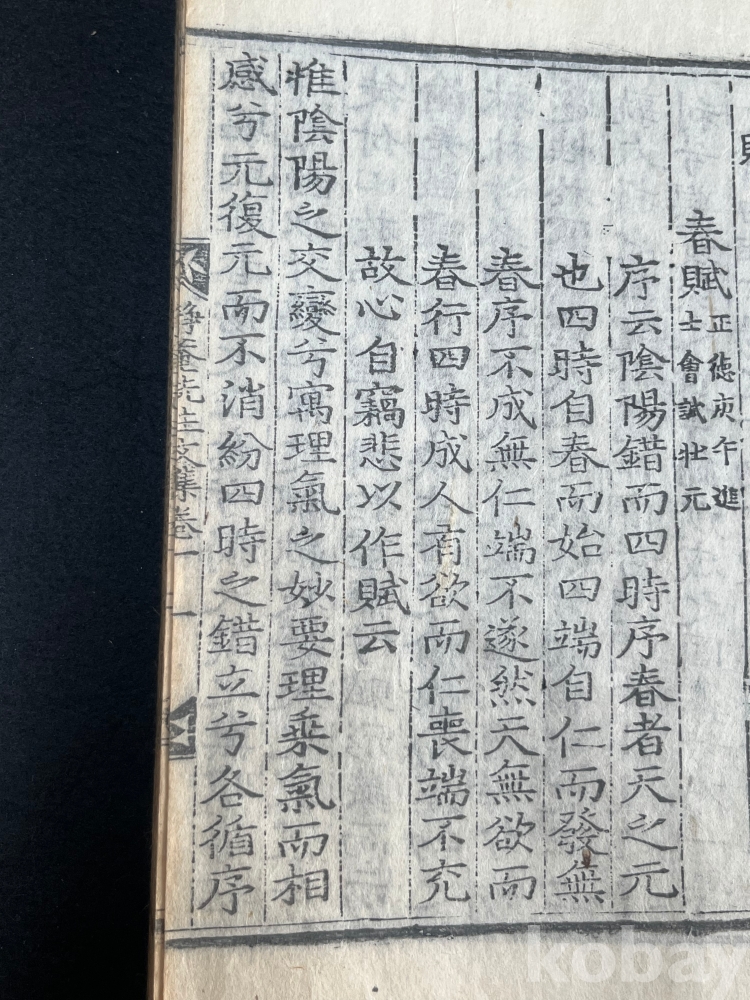 春賦 正德庚午進
士會試壯元
序云陰陽錯而四時序春者天之元
也四時自春而始四端自仁而發無
春序不成無仁端不遂然天無欲而
春行四時成人有欲而仁喪端不充
故心自竊悲以作賦云
惟陰陽之交變兮寓理氣之妙要理乗氣而相
感兮元復元而不消紛四時之錯立兮各循序
靜庵先生文集卷一 一
kobay